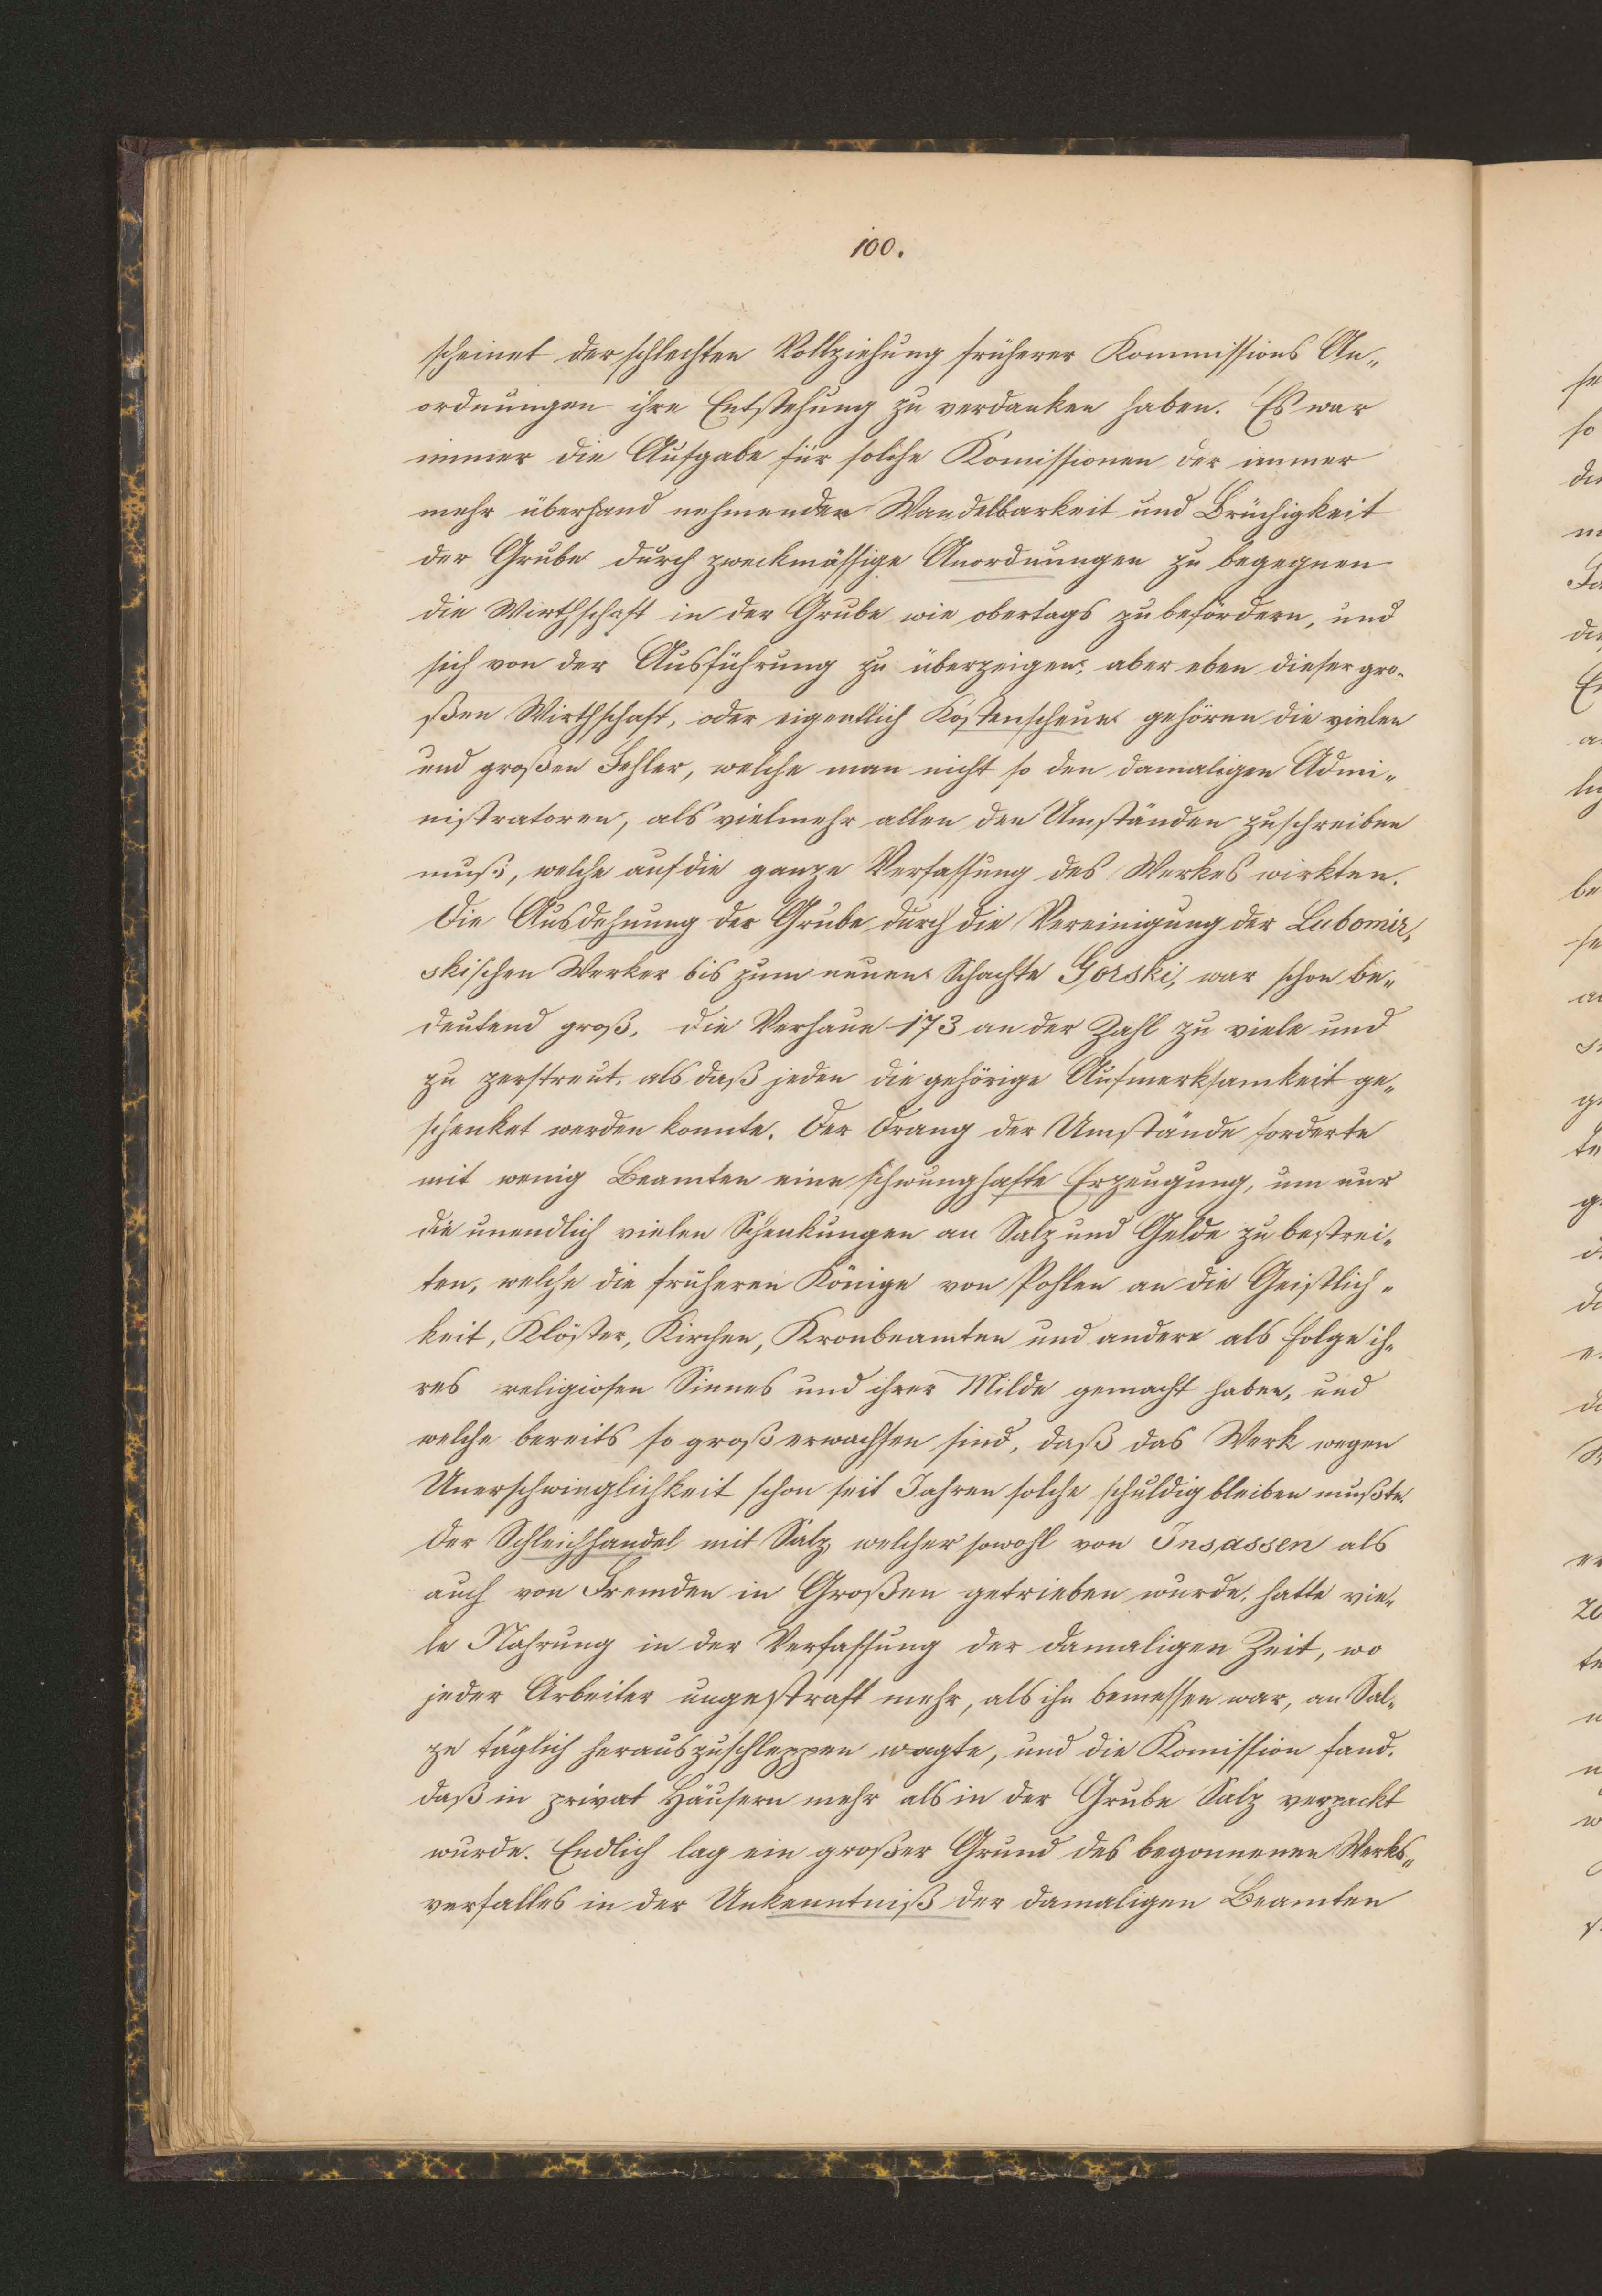 100.
scheinet der schlechten Vollziehung früherer Kommissions An„
ordnungen ihre Entstehung zu verdanken haben. Es war
immer die Aufgabe für solche Komissionen der immer
mehr überhand nehmenden Wandelbarkeit und Brüchigkeit
der Grube durch zweckmässige Anordnungen zu begegnen
die Wirthschaft in der Grube wie obertags zu befördern, und
sich von der Ausführung zu überzeigen; aber eben dieser gro-
ßen Wirthschaft, oder eigentlich Kostenscheue gehören die vielen
und großen Fehler, welche man nicht so den damaligen Admi„
nistratoren, als vielmehr allen den Umständen zuschreiben
muß, welche auf die ganze Verfassung des Werkes wirkten.
Die Ausdehnung der Grube durch die Vereinigung der Lubomir„
skischen Werker bis zum neuen Schachte Gorski, war schon be„
deutend groß, die Verhaue 173 an der Zahl zu viele und
zu zerstreut, als daß jeden die gehörige Aufmerksamkeit ge„
schenket werden konnte. Der Drang der Umstände forderte
mit wenig Beamten eine schwunghafte Erzeugung, um nur
die unendlich vielen Schenkungen an Salz und Gelde zu bestrei„
ten, welche die früheren Könige von Pohlen an die Geistlich„
keit, Klöster, Kirchen, Kronbeamten und andere als Folge ih„
res religiosen Sinnes und ihrer Milde gemacht haben, und
welche bereits so groß erwachsen sind, daß das Werk wegen
Unerschwinglichkeit schon seit Jahren solche schuldig bleiben mußte.
Der Schleichhandel mit Salz, welcher sowohl von Insassen als
auch von Fremden in Großen getrieben wurde, hatte vie„
le Nahrung in der Verfassung der damaligen Zeit, wo
jeder Arbeiter ungestraft mehr, als ihn bemessen war, an Sal„
ze täglich herauszuschleppen wagte, und die Komission fand,
daß in privat Häusern mehr als in der Grube Salz verpackt
wurde. Endlich lag ein großer Grund des begonnenen Werks„
verfalles in der Unkenntniß der damaligen Beamten